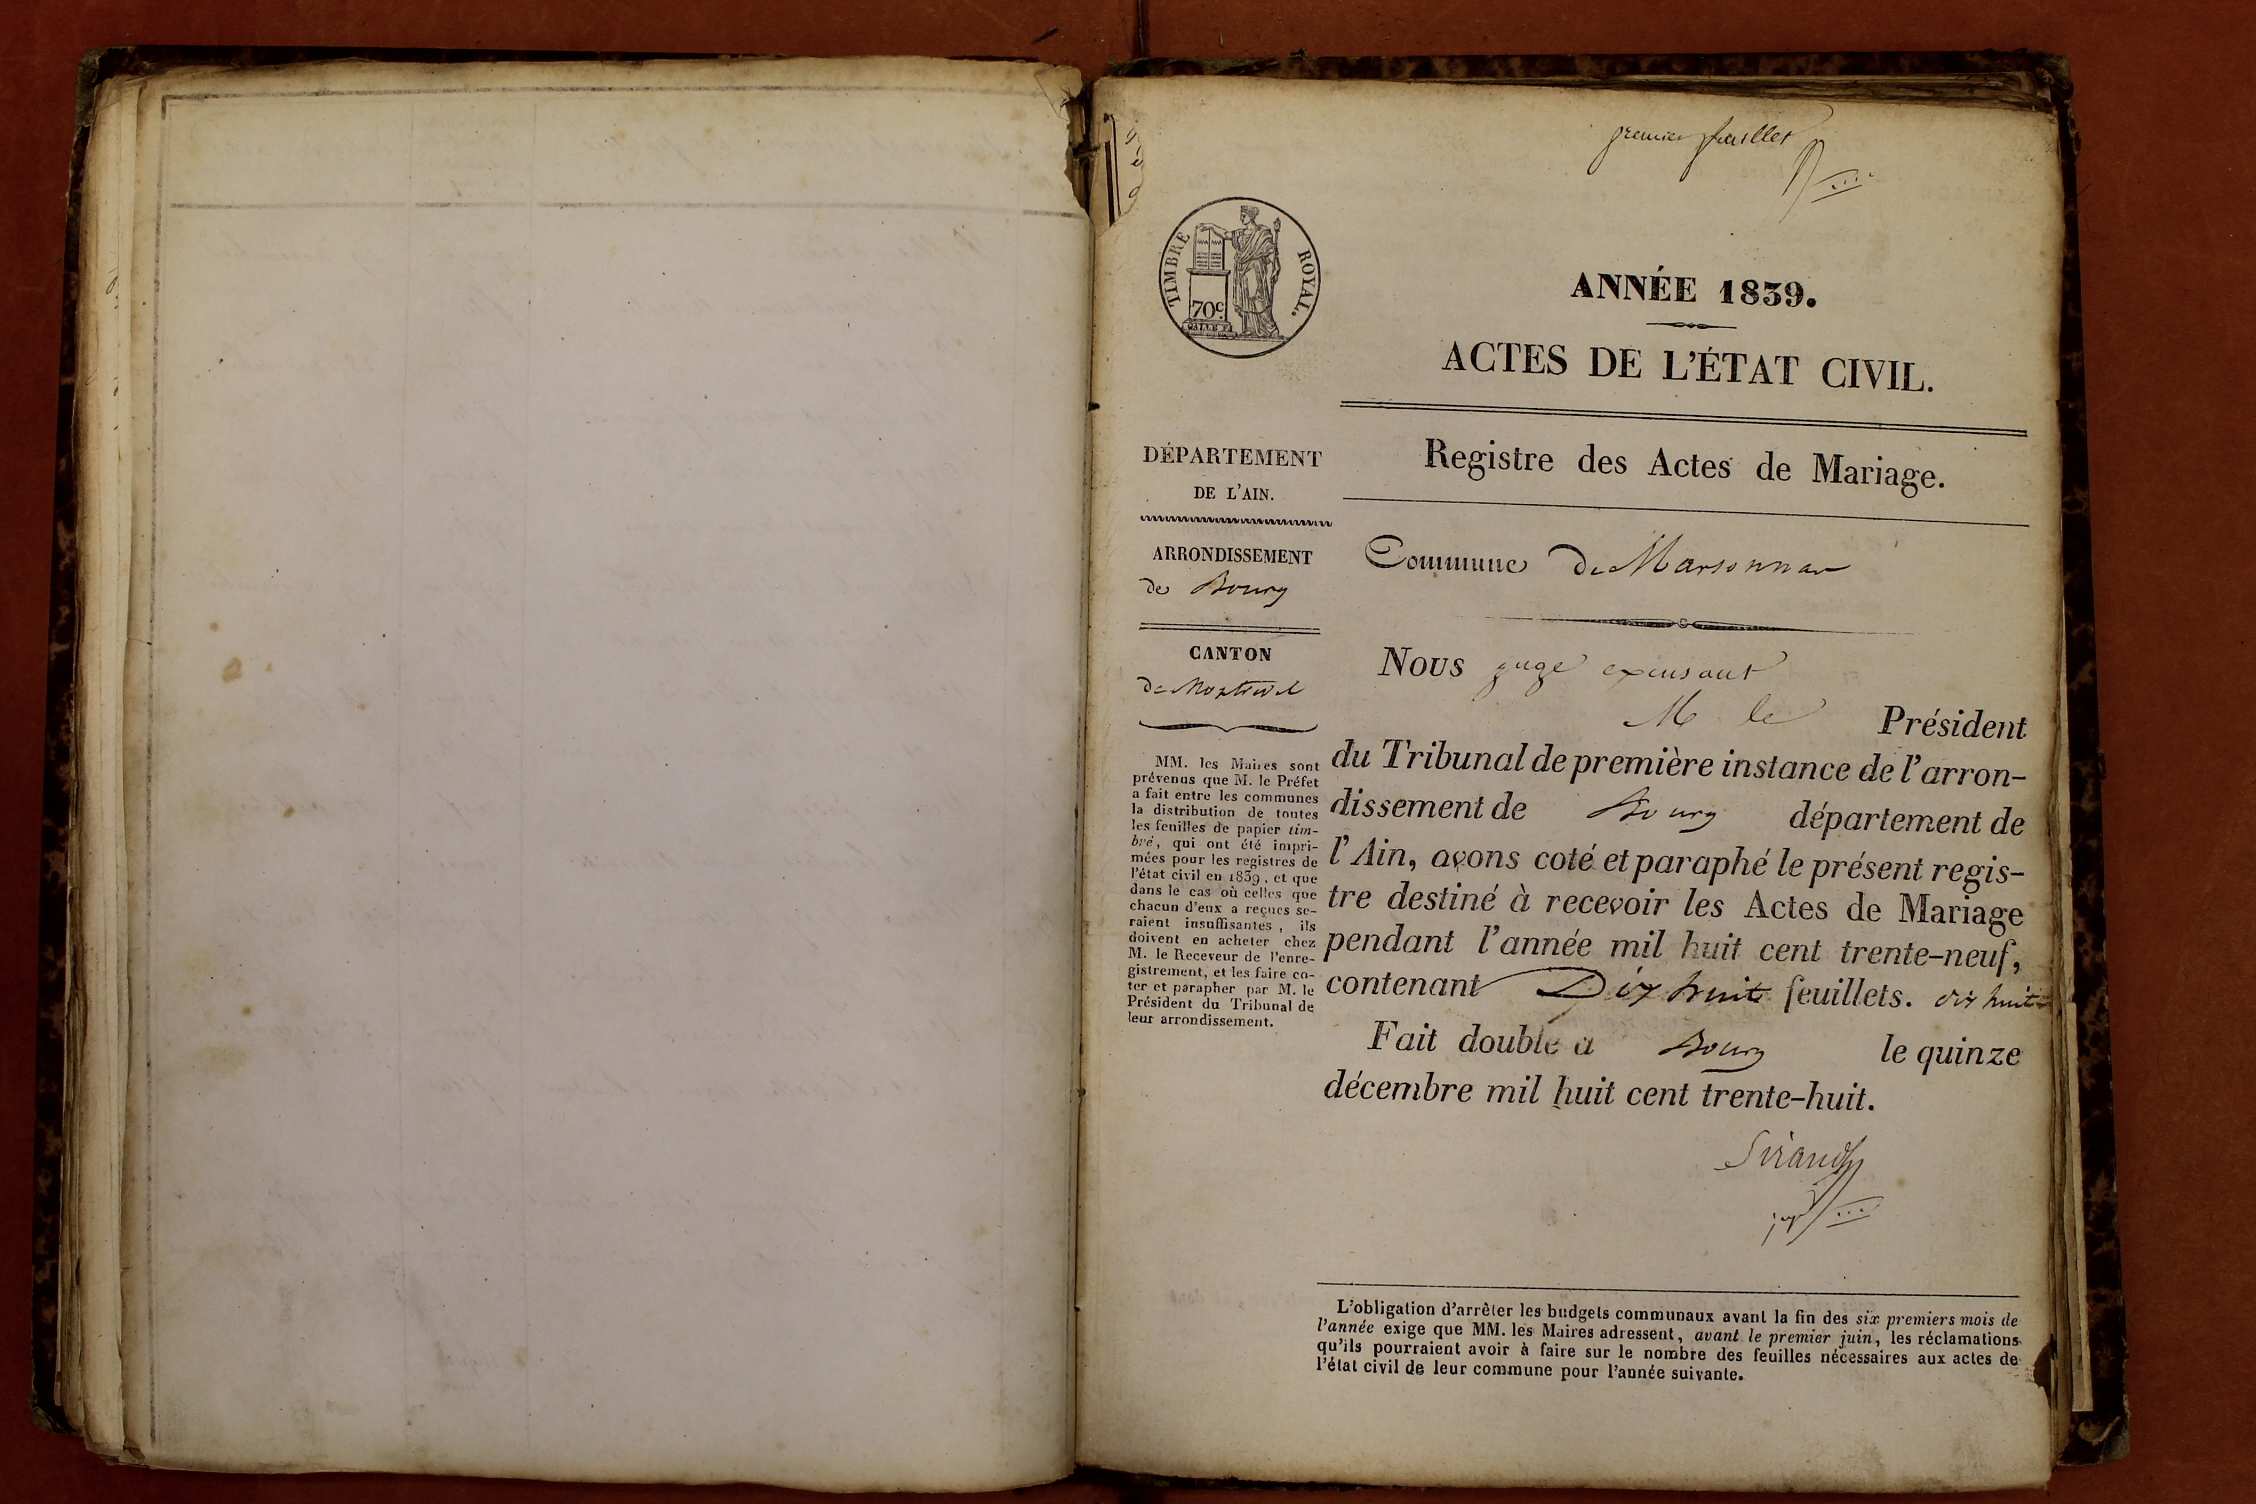 premier feuillet
TIMBRE ROYAL.
70c.
ANNÉE 1839.
ACTES DE L'ÉTAT CIVIL.
DÉPARTEMENT
DE L'AIN.
ARRONDISSEMENT
de Bourg
CANTON
de Montrevel
MM. les Maires sont
prévenus que M. le Préfet
a fait entre les communes
la distribution de toutes
les feuilles de papier tim-
bré, qui ont été impri-
mées pour les registres de
l'état civil en 1839, et que
dans le cas où celles que
chacun d'eux a reçues se-
raient insuffisantes, ils
doivent en acheter chez
M. le Receveur de l'enre-
gistrement, et les faire co-
ter et parapher par M. le
Président du Tribunal de
leur arrondissement.
Registre des Actes de Mariage.
Commune de Marsonnas
Nous juge excusant
M le Président
du Tribunal de première instance de l'arron-
dissement de Bourg département de
l'Ain, avons coté et paraphé le présent regis-
tre destiné à recevoir les Actes de Mariage
pendant l'année mil huit cent trente-neuf,
contenant Dix huit feuillets. dix huit
Fait double à Bourg le quinze
décembre mil huit cent trente-huit.
Sirand
juge
L'obligation d'arrêter les budgets communaux avant la fin des six premiers mois de
l'année exige que MM. les Maires adressent, avant le premier juin, les réclamations
qu'ils pourraient avoir à faire sur le nombre des feuilles nécessaires aux actes de
l'état civil de leur commune pour l'année suivante.